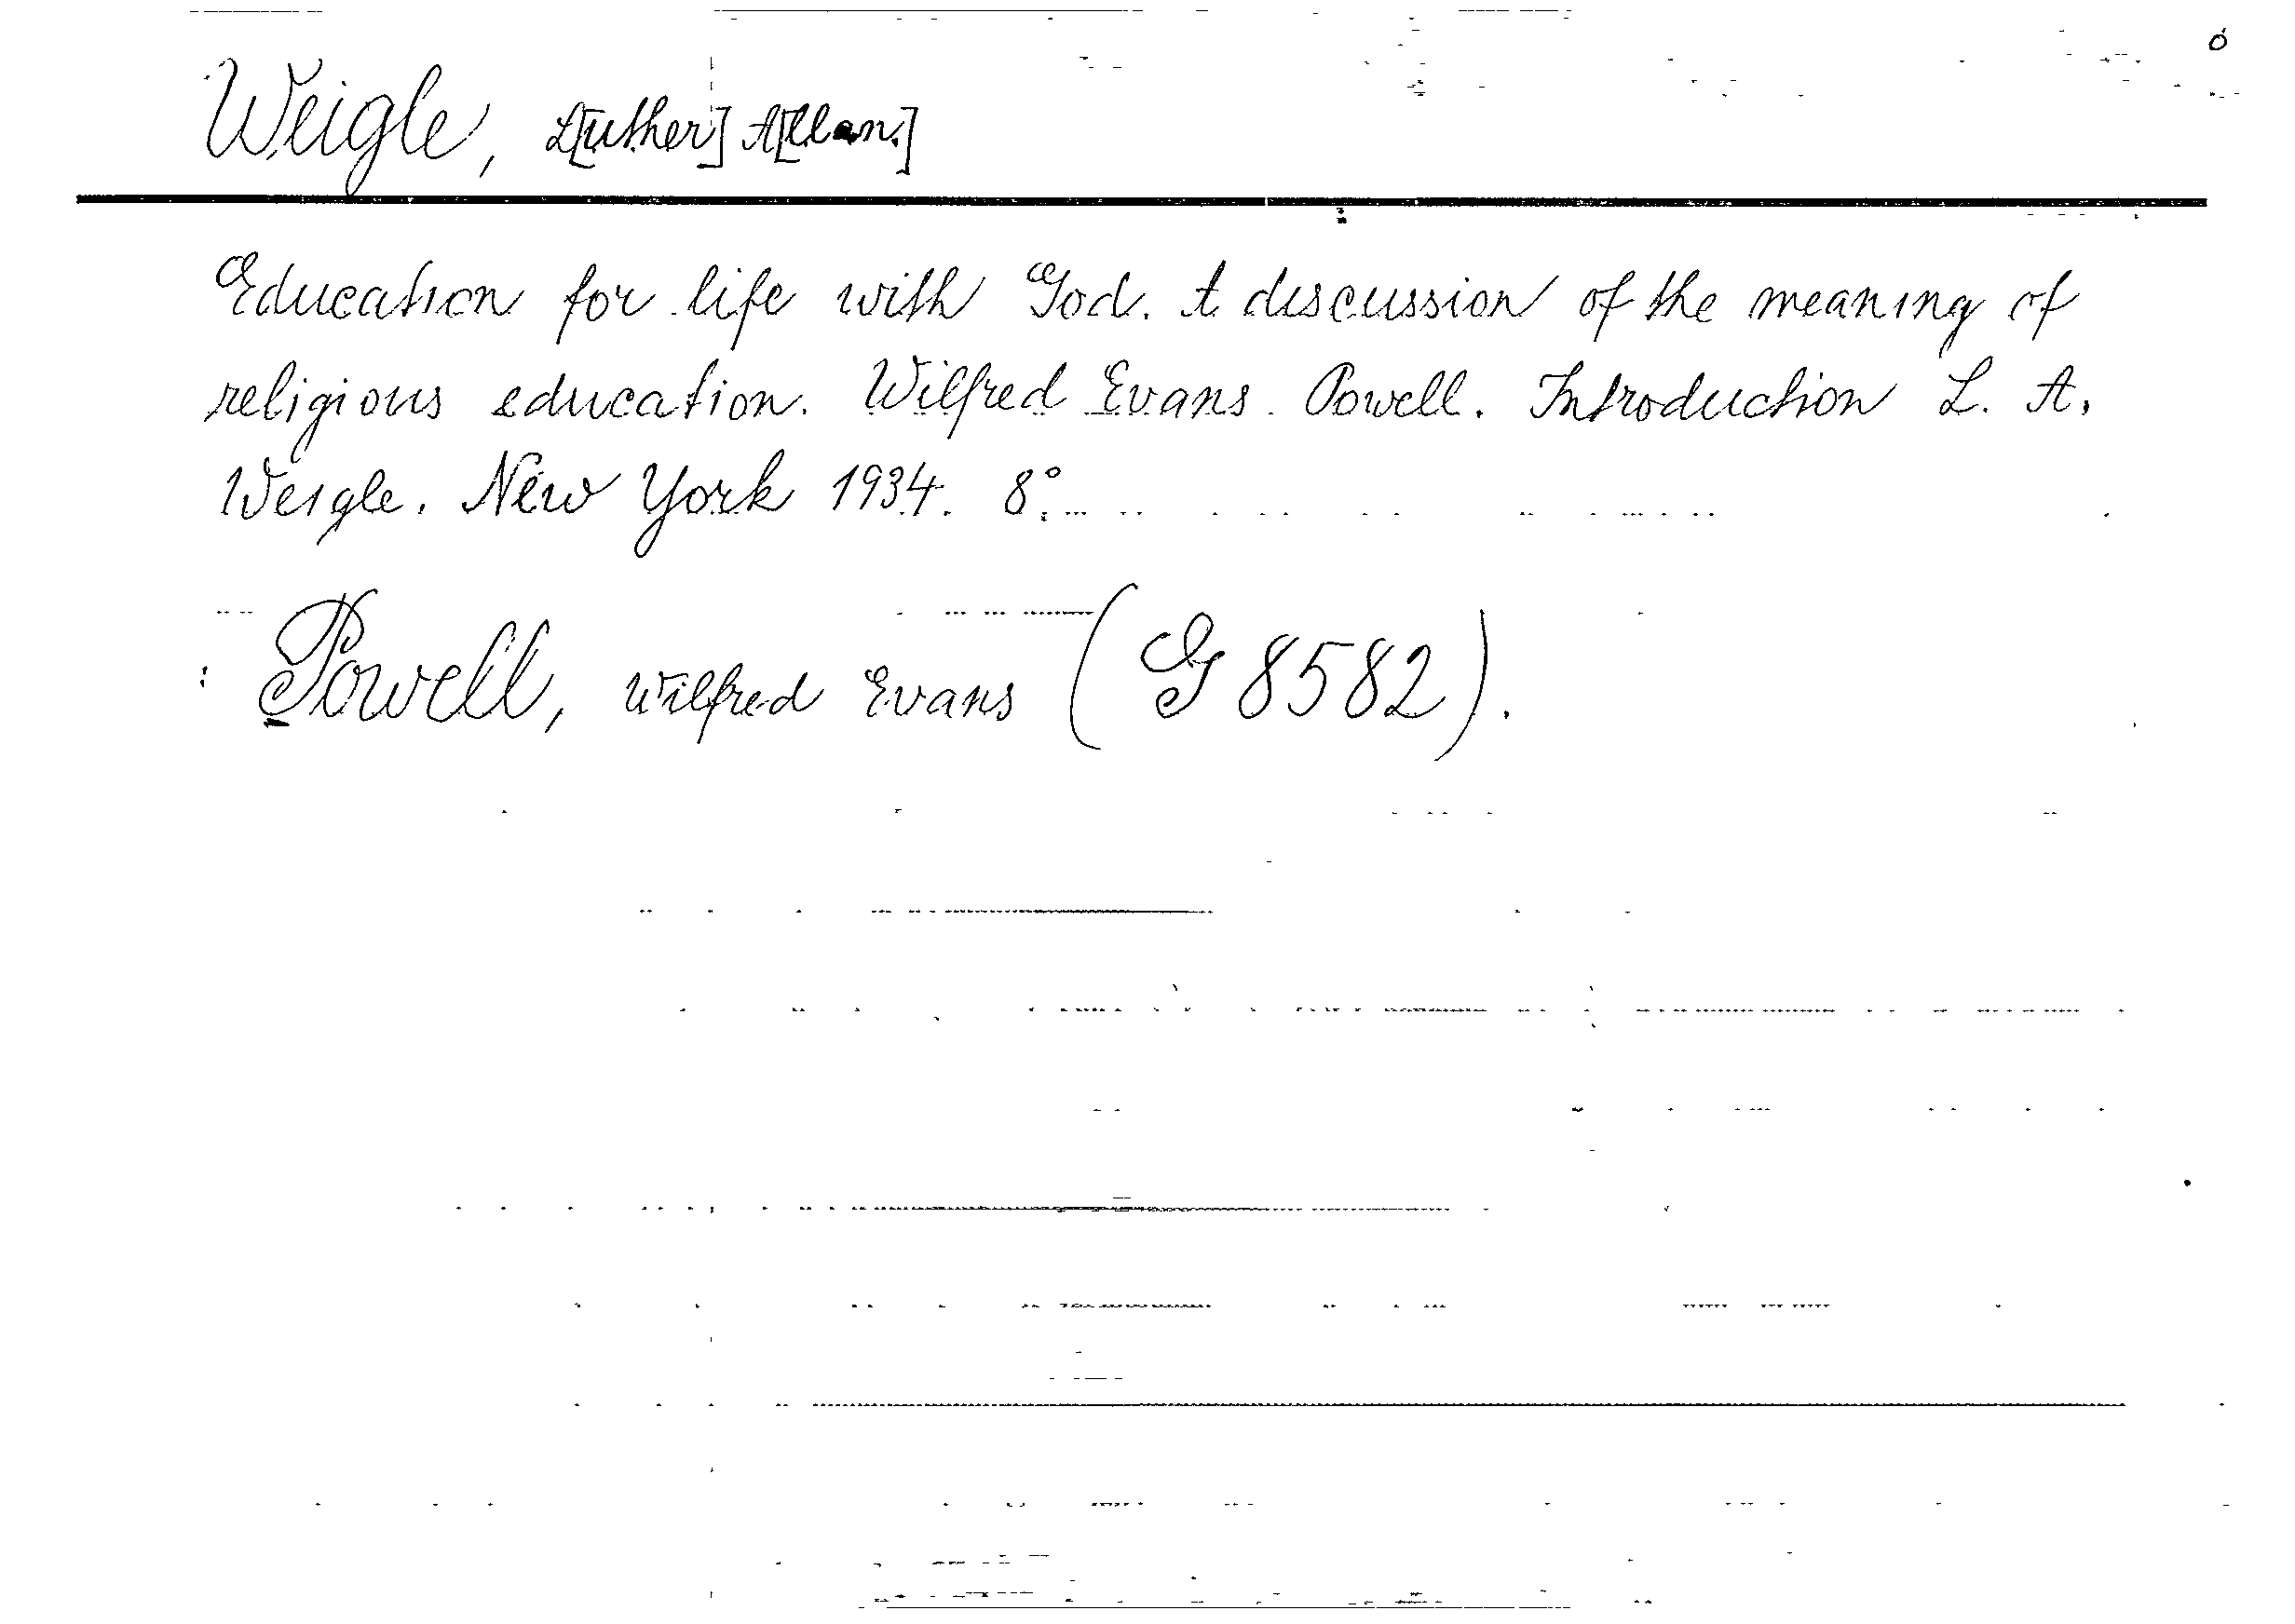 Weigle, L[uther] A[llan.]
Education for life with God. A discussion of the meaning of
religious education. Wilfred Evans Powell. Introduction L. A.
Weigle. New York 1934. 8°.
Powell, Wilfred Evans (G 8582).